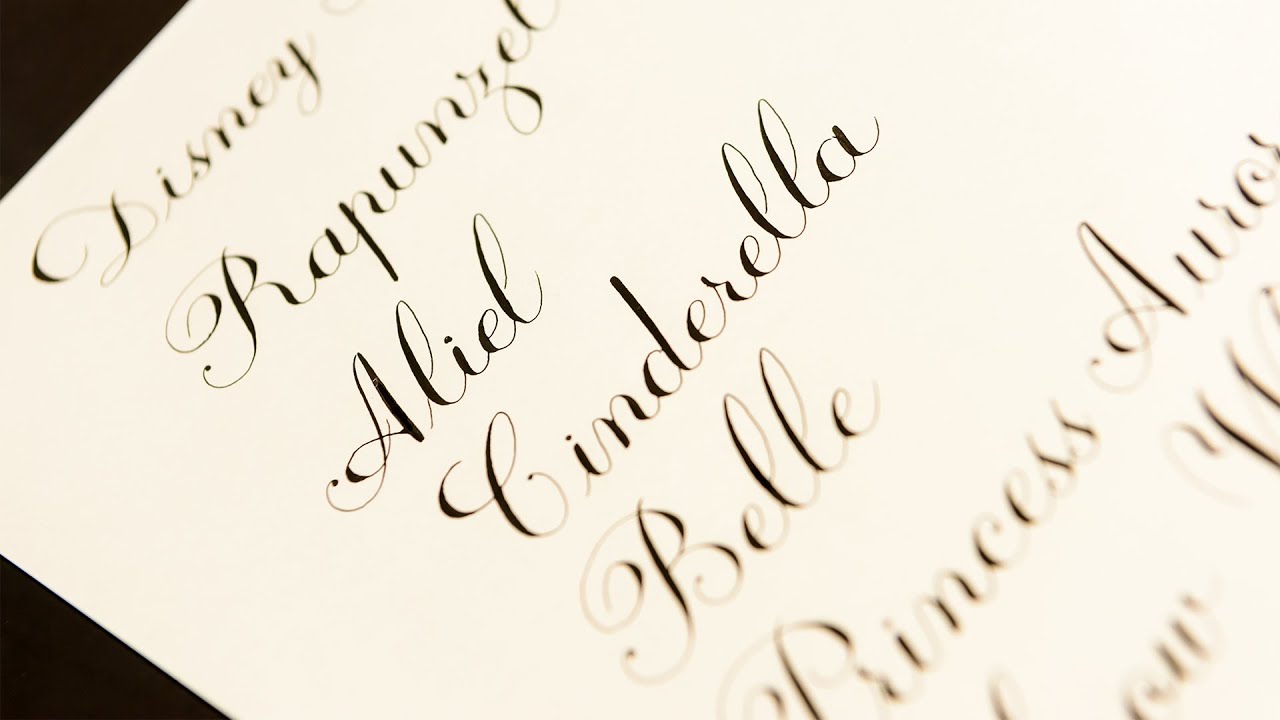 Disney
Rapunzel
Aliel
Cinderella
Belle
Princess Auror
ow W